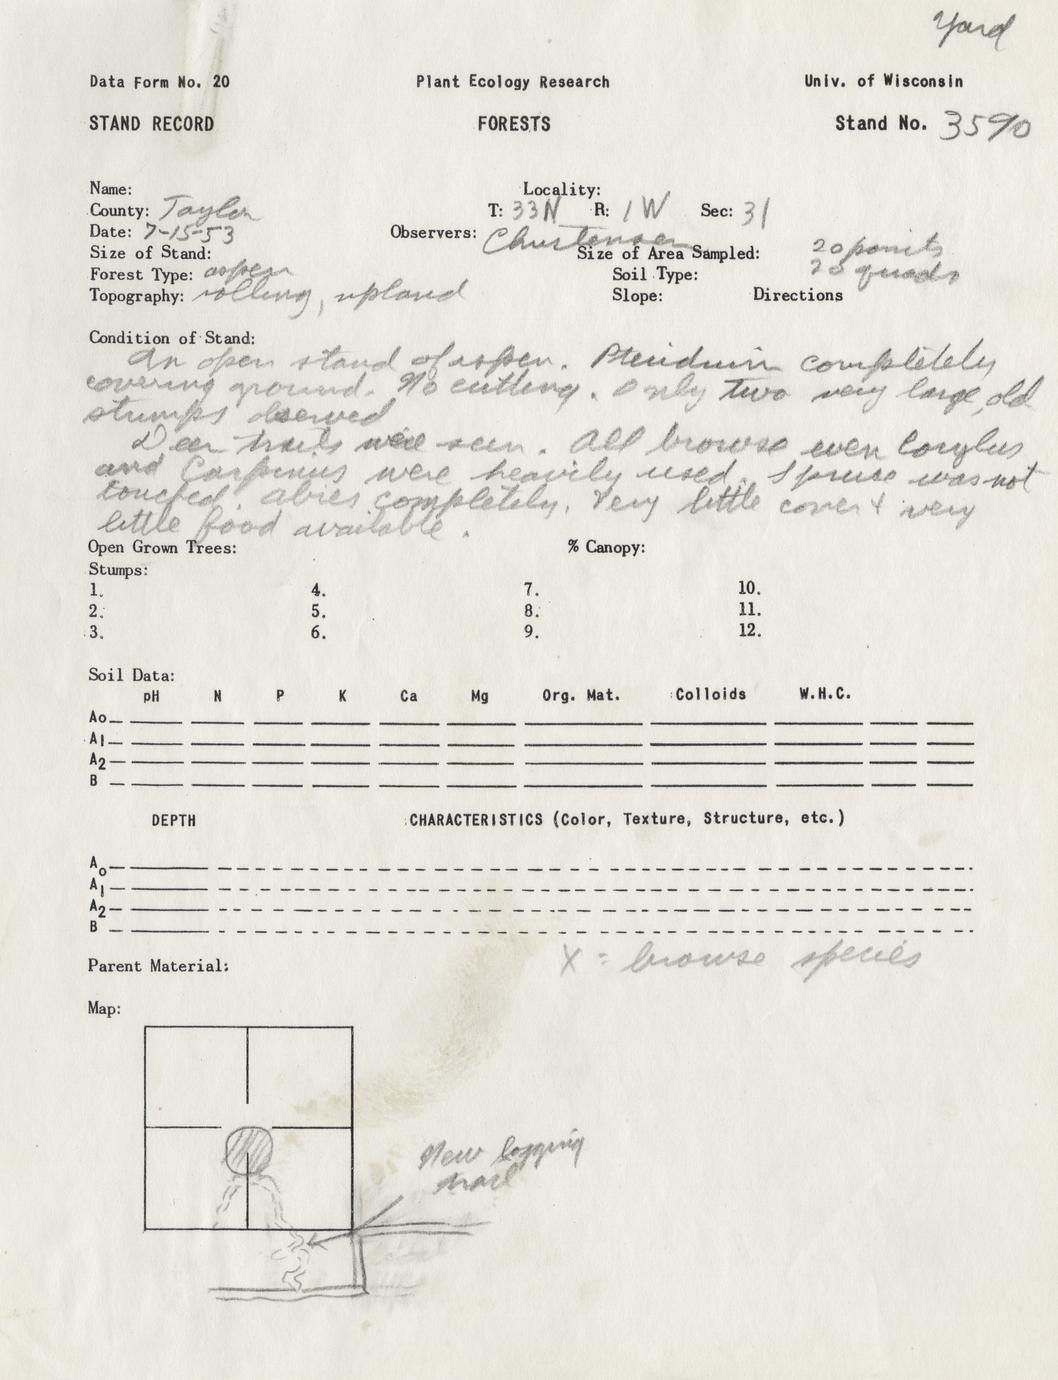 Yard
Data Form No. 20 Plant Ecology Research Univ. of Wisconsin
STAND RECORD FORESTS Stand No. 3590
Name: Locality:
County: Taylor T: 33N R: 1W Sec: 31
Date: 7-15-53 Observers: Christensen
Size of Stand: Size of Area Sampled: 20 points
Forest Type: aspen Soil Type: 20 quads
Topography: rolling, upland Slope: Directions
Condition of Stand:
An open stand of aspen. Pteridium completely
covering ground. No cutting. Only two very large, old
stumps observed
Deer trails were seen. All browse even Corylus
and Carpinus were heavily used. Spruce was not
touched. Abies completely. Very little cover & very
little food available.
Open Grown Trees: % Canopy:
Stumps:
1. 4. 7. 10.
2. 5. 8. 11.
3. 6. 9. 12.
Soil Data:
pH N P K Ca Mg Org. Mat. Colloids W.H.C.
Ao
A1
A2
B
DEPTH CHARACTERISTICS (Color, Texture, Structure, etc.)
Ao
A1
A2
B
X = browse species
Parent Material:
Map:
New logging
trail